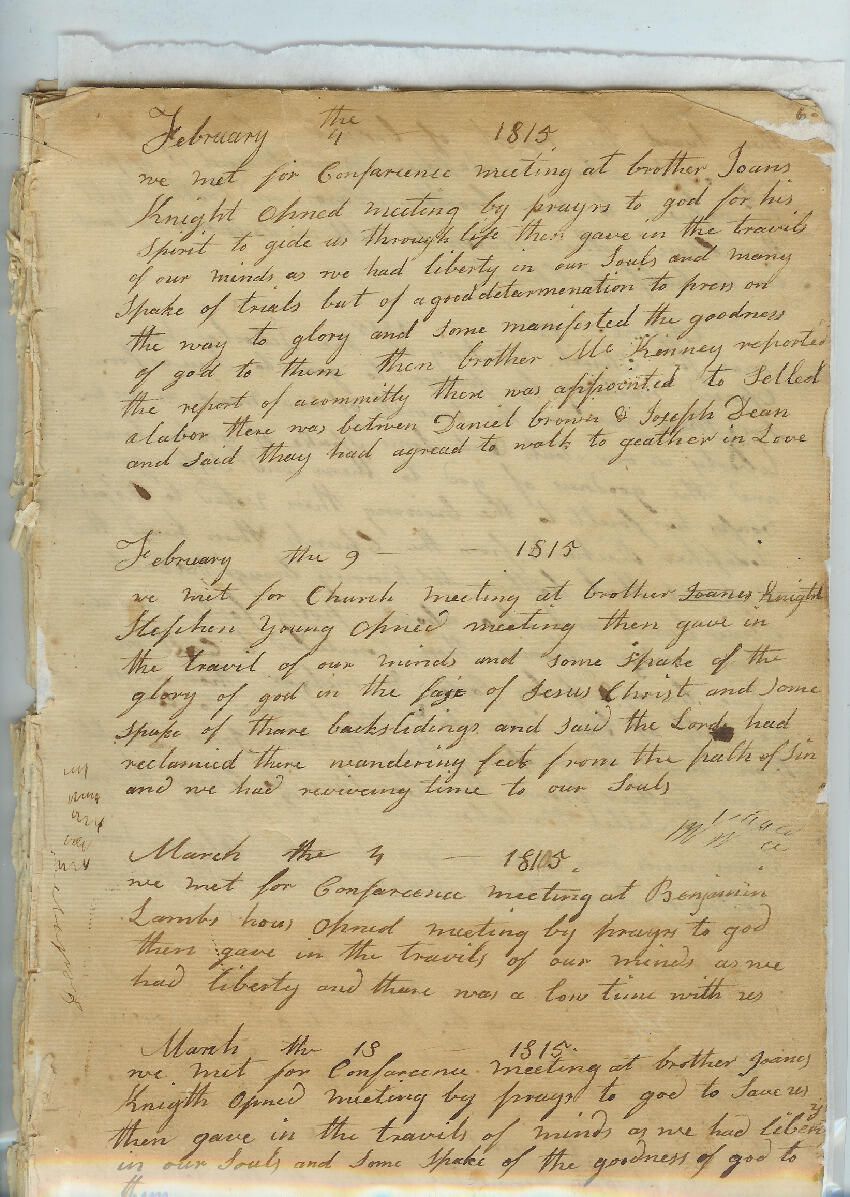 6
February the 4 1815
we met for Confarence meeting at brother Joans
Knight Opned meeting by prayrs to god for his
spirit to gide us through life then gave in the travils
of our minds as we had liberty in our Souls and many
spake of trials but of a good detarmenation to press on
the way to glory and some manifested the goodness
of god to them then brother Mc Kenney reported
the report of a committy there was appointed to Selled
a labor there was betwen Daniel brown & Joseph Dean
and said thay had agread to walk to geather in Love
February the 9 — — 1815
we met for Church meeting at brother Joanes Knight
Stephen Young Opned meeting then gave in
the travil of our minds and some spake of the
glory of god in the face of Jesus Christ and some
spake of thare backslidings and said the Lord had
reclamied there wandering feet from the path of Sin
and we had reviveing time to our Souls
March the 4 — 1815
we met for Confarcence meeting at Benjamin
Lambs hous Opned meeting by prayrs to god
then gave in the travils of our minds as we
had liberty and thare was a low time with us
March the 18 1815
we met for Confarcence meeting at brother Joanes
Knigth Opned meeting by prayrs to god to Save us
then gave in the travils of minds as we had liberty
in our Souls and some spake of the goodness of god to
them